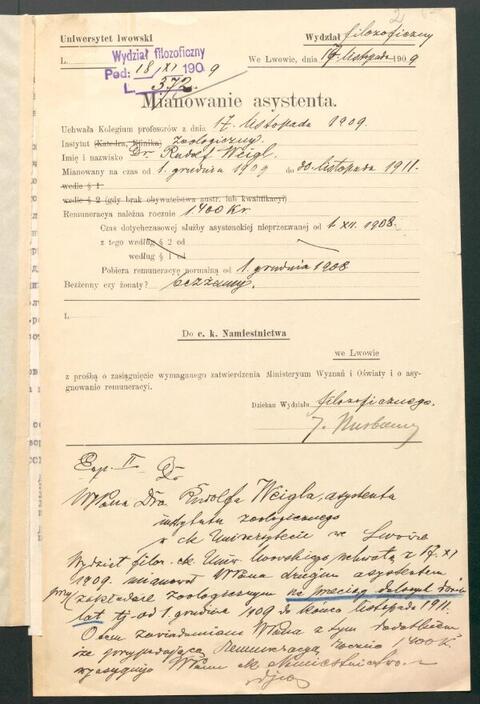 2
Uniwersytet lwowski Wydział filozoficzny
L. We Lwowie, dnia 17 listopada 1909
Wydział filozoficzny
Pod: 18/XI 1909
L. 372.
Mianowanie asystenta.
Uchwała Kolegium profesorów z dnia 17. listopada 1909.
Instytut (Katedra, Klinika) zoologiczny
Imię i nazwisko Dr. Rudolf Weigl.
Mianowany na czas od 1. grudnia 1909 do 30. listopada 1911.
wedle § 1
wedle § 2 (gdy brak obywatelstwa austr. lub kwalifikacyi)
Remuneracya należna rocznie 1400 Kr.
Czas dotychczasowej służby asystenckiej nieprzerwanej od 1. XII. 1908.
z tego według § 2 od
według § 1 od
Pobiera remuneracyę normalną od 1. grudnia 1908
Bezżenny czy żonaty? bezżenny.
L.
Do c. k. Namiestnictwa
we Lwowie
z prośbą o zasiągnięcie wymaganego zatwierdzenia Ministeryum Wyznań i Oświaty i o asygnowanie remuneracyi.
Dziekan Wydziału filozoficznego.
J. Nusbaum
Exp. II Dr
WPana Dra Rudolfa Weigla, asystenta
instytutu zoologicznego
w ck Uniwersytecie w Lwowie
Wydział filoz. ck. Uniw. lwowskiego uchwałą z 17. XI
1909. mianował WPana drugim asystentem
przy zakładzie zoologicznym na przeciąg dalszych dwóch
lat tj. od 1. grudnia 1909 do końca listopada 1911.
O czem zawiadamiam WPana z tym dodatkiem
że przypadającą remuneracyę 1400 K.
wyasygnuje WPanu ck Namiestnictwo.